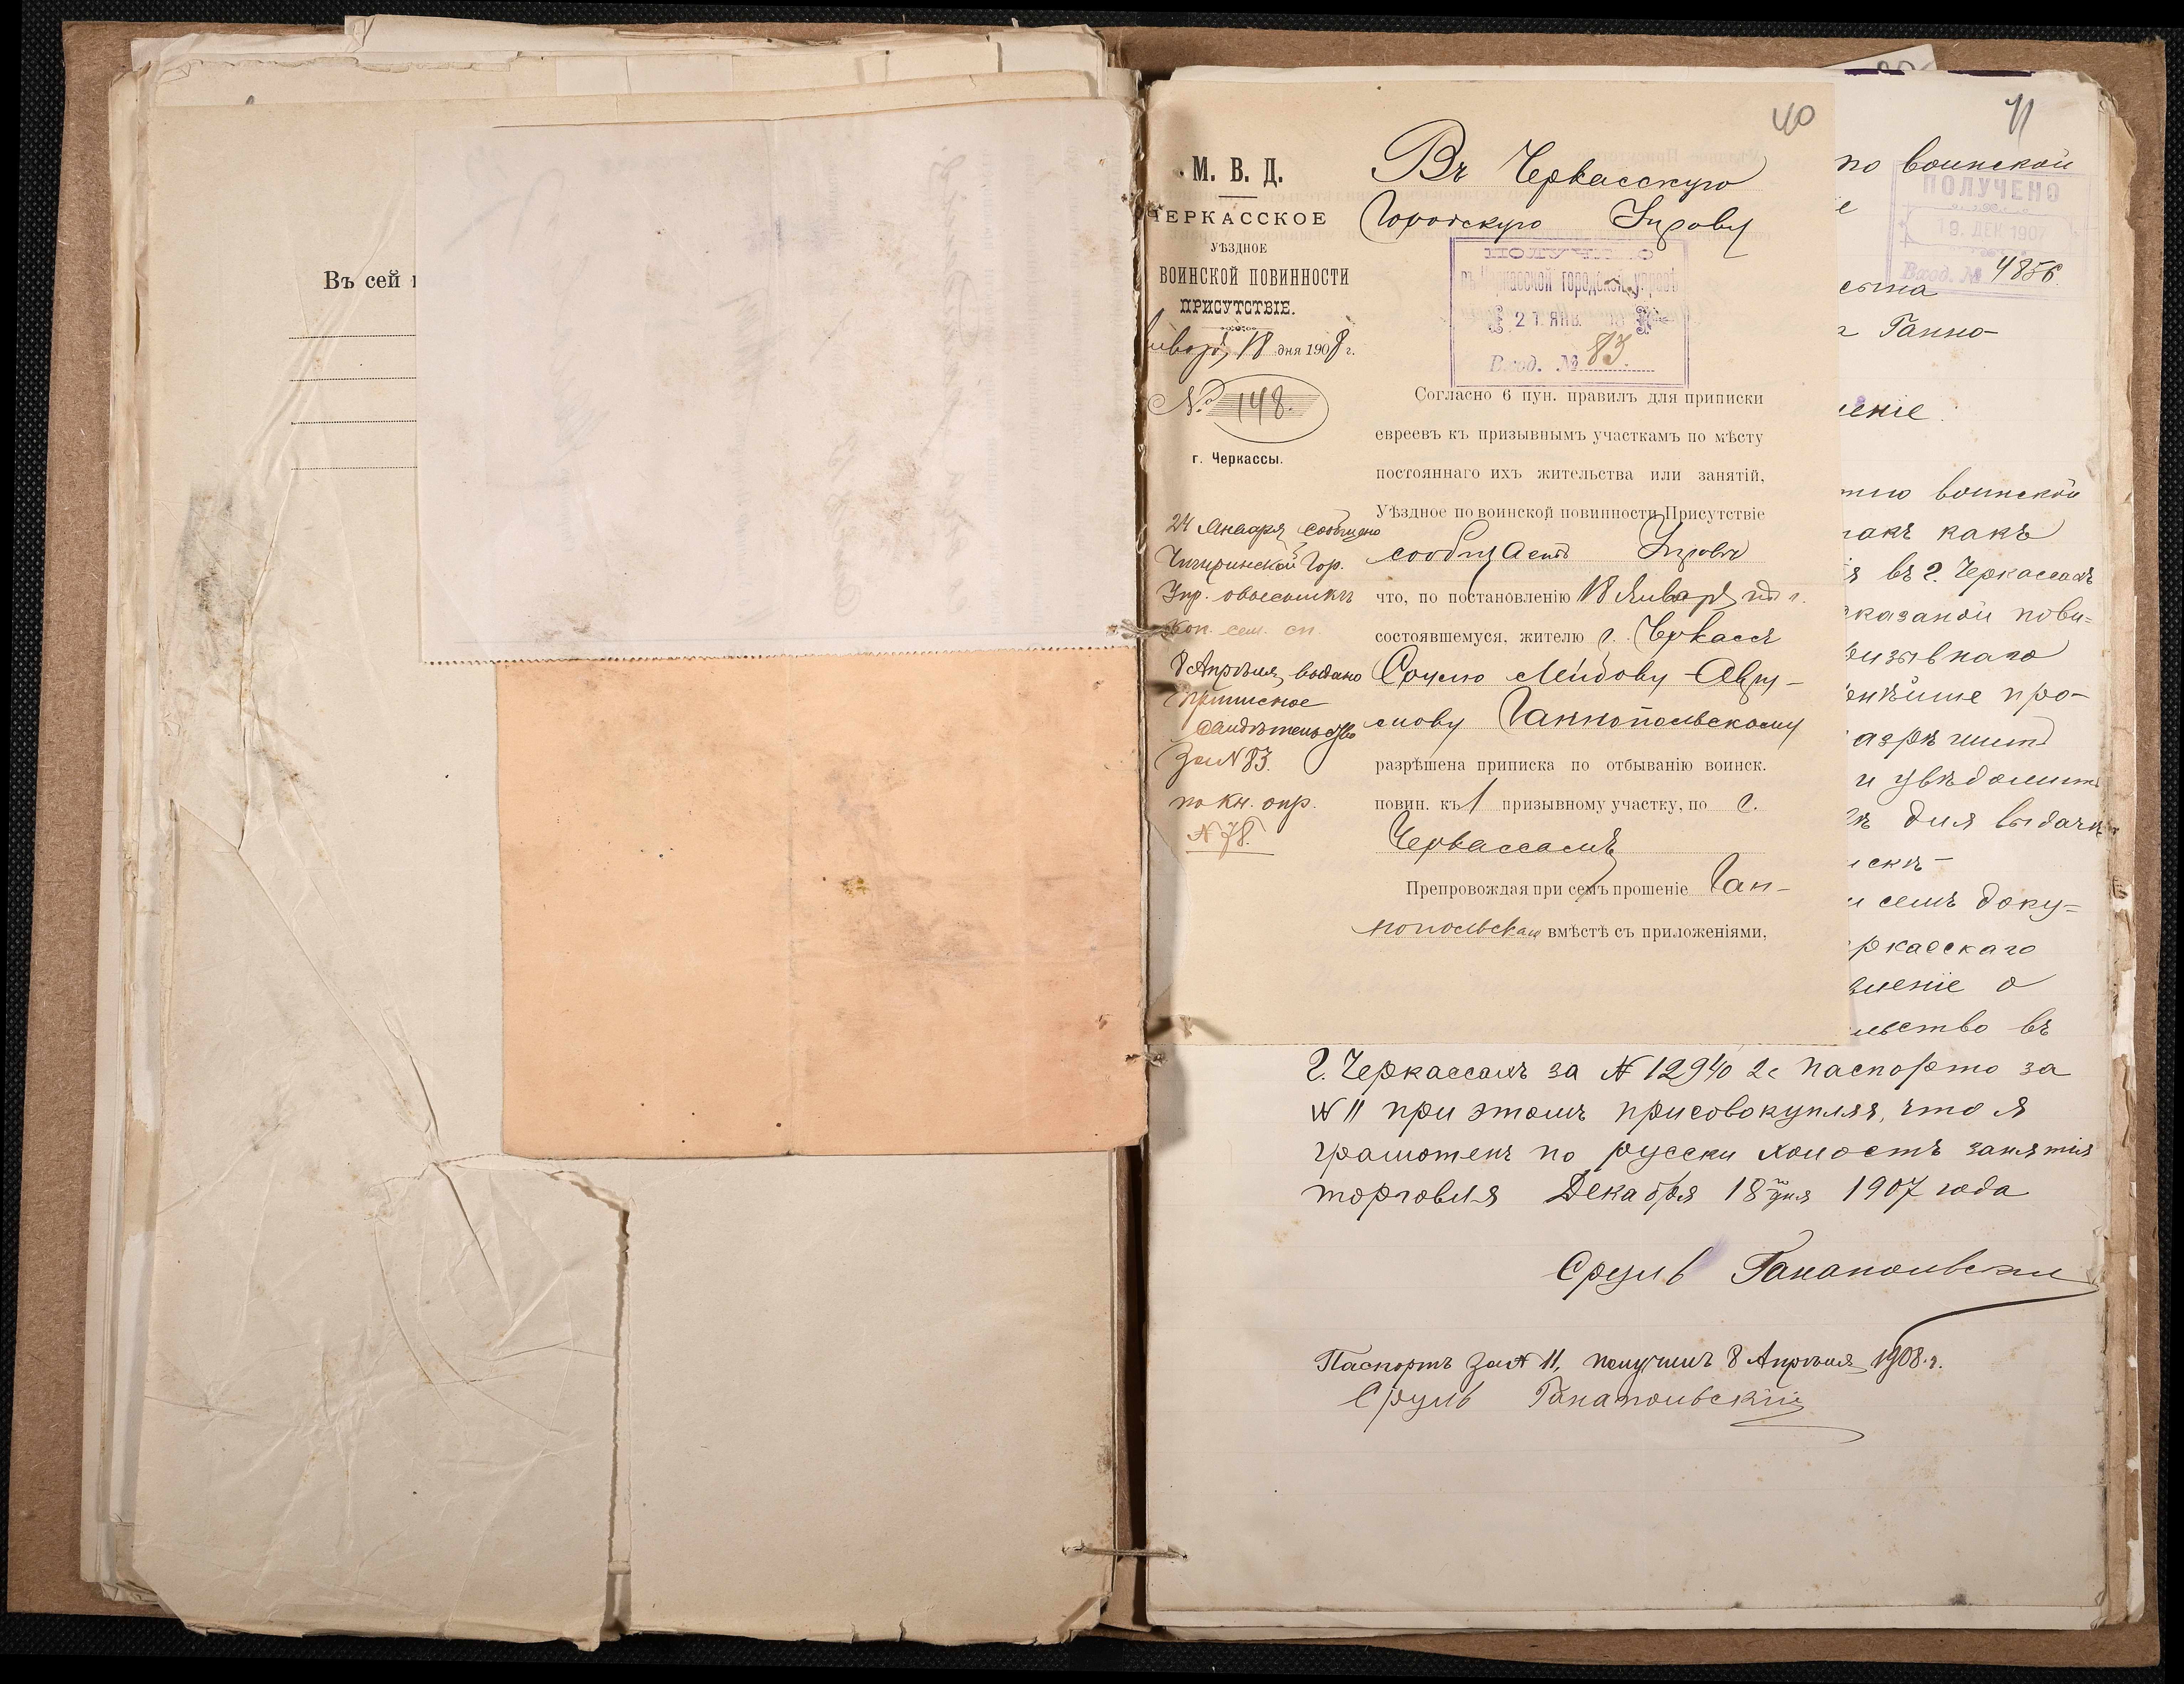 Въ сей
40
М. В. Д.
ЧЕРКАССКОЕ
УѢЗДНОЕ
ВОИНСКОЙ ПОВИННОСТИ
ПРИСУТСТВІЕ.
18 дня 1908 г.
№ 148.
г. Черкассы.
24 Января сообщено
Чигиринской Гор.
Упр. о высылкѣ
коп. сем. сп.
8 Апрѣля, выдано
приписное
свидѣтельство
за № 83.
по кн. опр.
№ 78.
Въ Черкасскую
Городскую Управу
ПОЛУЧЕНО
въ Черкасской городской управѣ
21 ЯНВ.
Вход. № 83.
Согласно 6 пун. правилъ для приписки
евреевъ къ призывнымъ участкамъ по мѣсту
постояннаго ихъ жительства или занятій,
Уѣздное по воинской повинности Присутствіе
сообщаетъ Управѣ
что, по постановленію 18 Января
состоявшемуся, жителю г. Черкассъ
Срулю Лейбову-Авру-
мову Ганнопольскому
разрѣшена приписка по отбыванію воинск.
повин. къ 1 призывному участку, по г.
Черкассамъ
Препровождая при семъ прошеніе Ган-
нопольскаго вмѣстѣ съ приложеніями,
41
по воинской
ПОЛУЧЕНО
19. ДЕК 1907
Вход. № 4856
сына
Ганно-
ение
воинской
такъ какъ
въ г. Черкассахъ
казаной пови-
ризывнаго
про-
и увѣдомить
для выдачи
и семъ доку-
ркасскаго
о
льство въ
г. Черкассахъ за № 12940 2е паспортъ за
№ 11 при этомъ присовокупляя, что я
грамотенъ по русски холостъ занятія
торговля Декабря 18го дня 1907 года
Сруль Ганапольски
Паспортъ за № 11, получилъ 8 Апрѣля 1908 г.
Сруль Ганапольскій